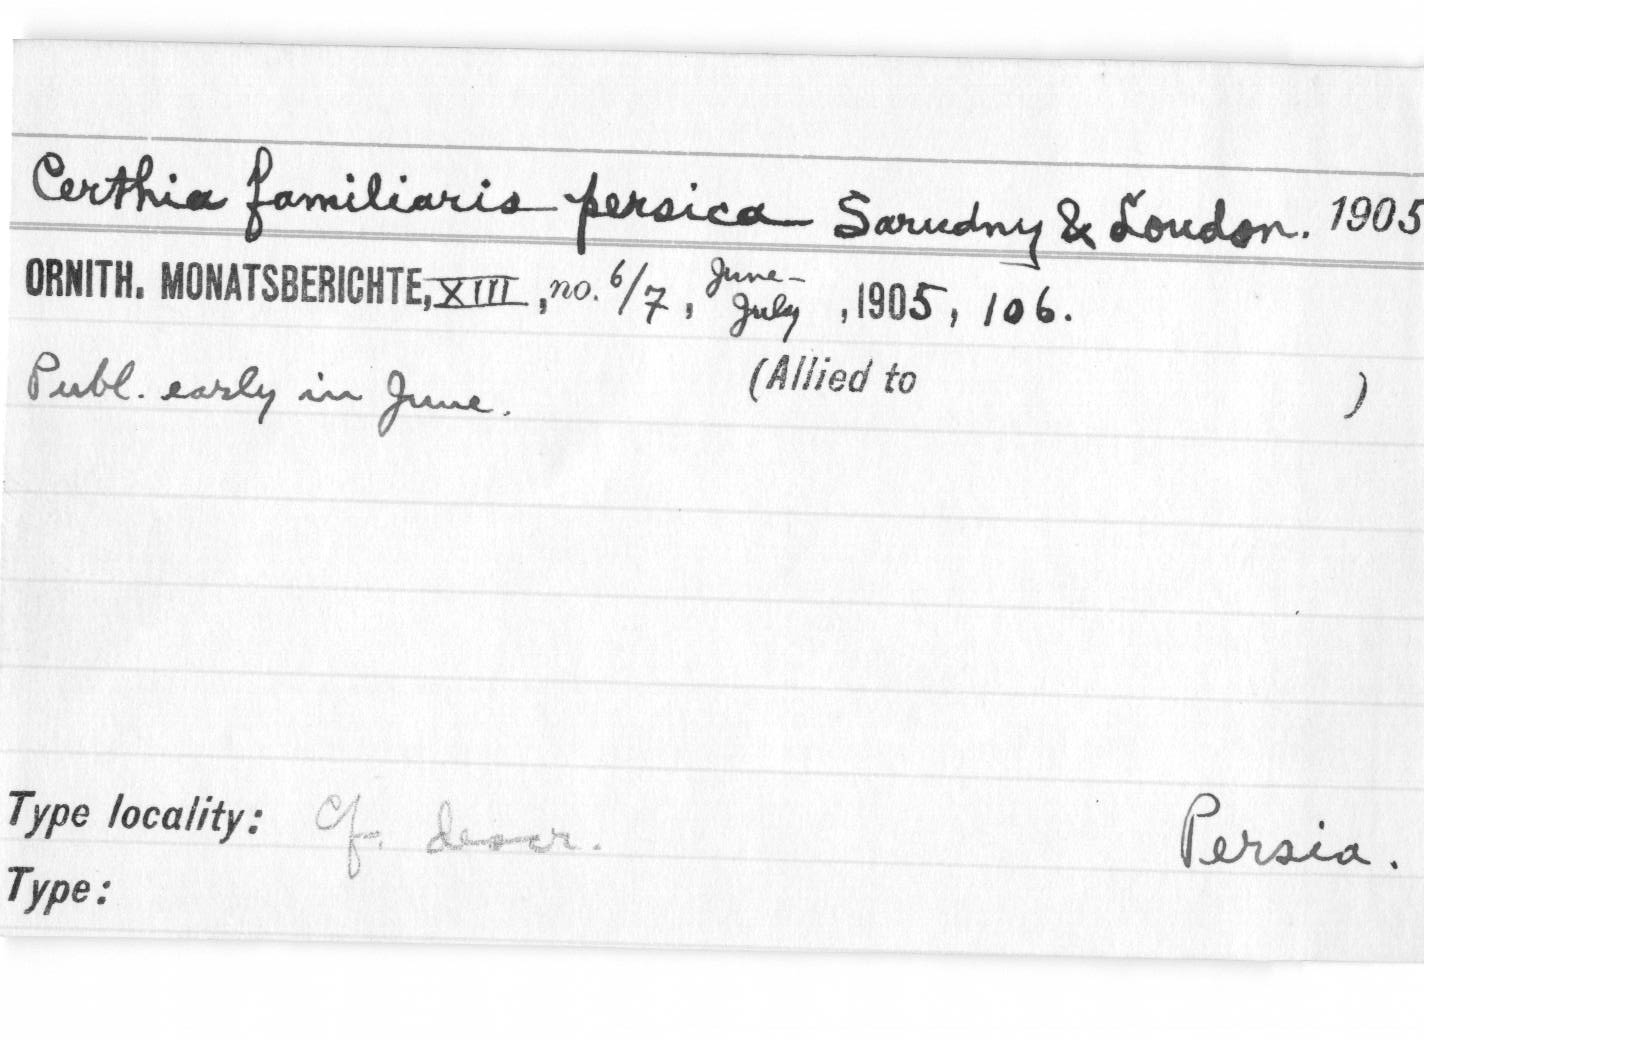 Certhia familiaris persica Sarudny & Loudon. 1905
ORNITH. MONATSBERICHTE, XIII, no. 6/7, June-July, 1905, 106.
Publ. early in June. (Allied to )
Type locality: Cf. descr. Persia.
Type: